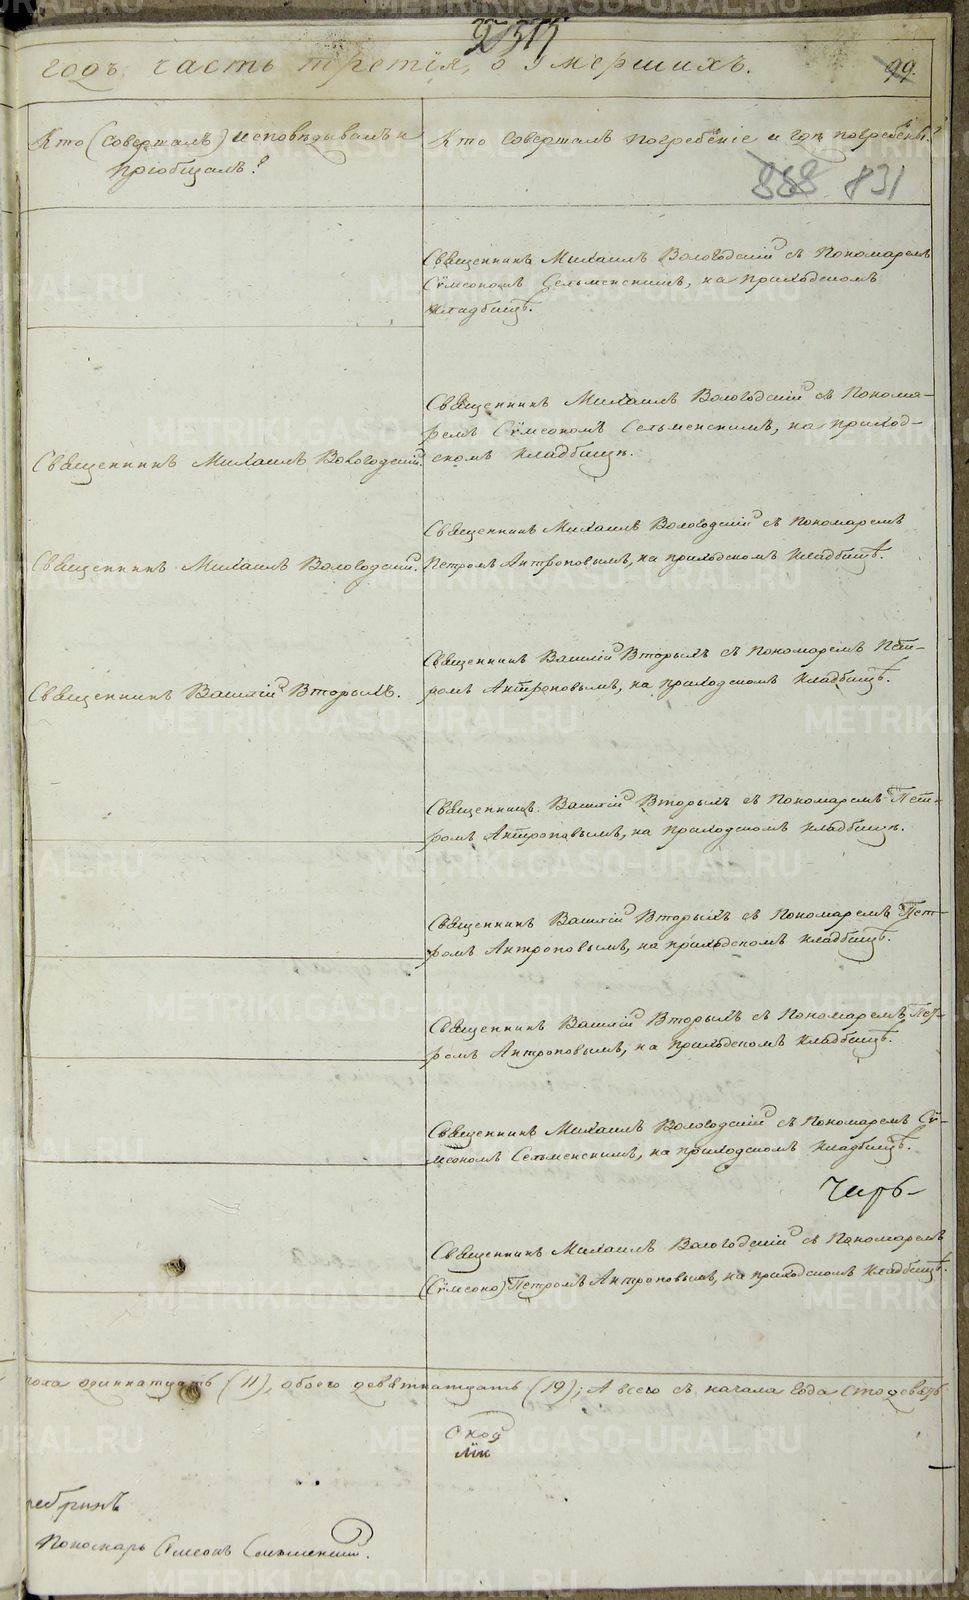 годъ часть третія, о умершихъ.
99.
Кто (совершалъ) исповѣдывалъ и
пріобщалъ?
Кто совершалъ погребеніе и гдѣ погребены?
888 831
Священникъ Михаилъ Вологодскій съ Пономаремъ
Сѵмеономъ Сельменскимъ, на приходскомъ
кладбищѣ.
Священникъ Михаилъ Вологодскій съ Понома-
ремъ Сѵмеономъ Сельменскимъ, на приход-
скомъ кладбищѣ.
Священникъ Михаилъ Вологодскій.
Священникъ Михаилъ Вологодскій съ Пономаремъ
Петромъ Антроповымъ, на приходскомъ кладбищѣ.
Священникъ Михаилъ Вологодскій.
Священникъ Василій Вторыхъ съ Пономаремъ Пет-
ромъ Антроповымъ, на приходскомъ кладбищѣ.
Священникъ Василій Вторыхъ.
Священникъ Василій Вторыхъ съ Пономаремъ Пет-
ромъ Антроповымъ, на приходскомъ кладбищѣ.
Священникъ Василій Вторыхъ съ Пономаремъ Пет-
ромъ Антроповымъ, на приходскомъ кладбищѣ.
Священникъ Василій Вторыхъ съ Пономаремъ Пет-
ромъ Антроповымъ, на приходскомъ кладбищѣ.
Священникъ Михаилъ Вологодскій съ Пономаремъ Сѵ-
меономъ Сельменскимъ, на приходскомъ кладбищѣ.
Священникъ Михаилъ Вологодскій съ Пономаремъ
(Сѵмеоно) Петромъ Антроповымъ, на приходскомъ кладбищѣ.
пола одиннатцать (11), обоего девятнатцать (19); А всего съ начала года сто девядь
Пономарь Сѵмеонъ Сельменскій.
METRIKI.GASO-URAL.RU